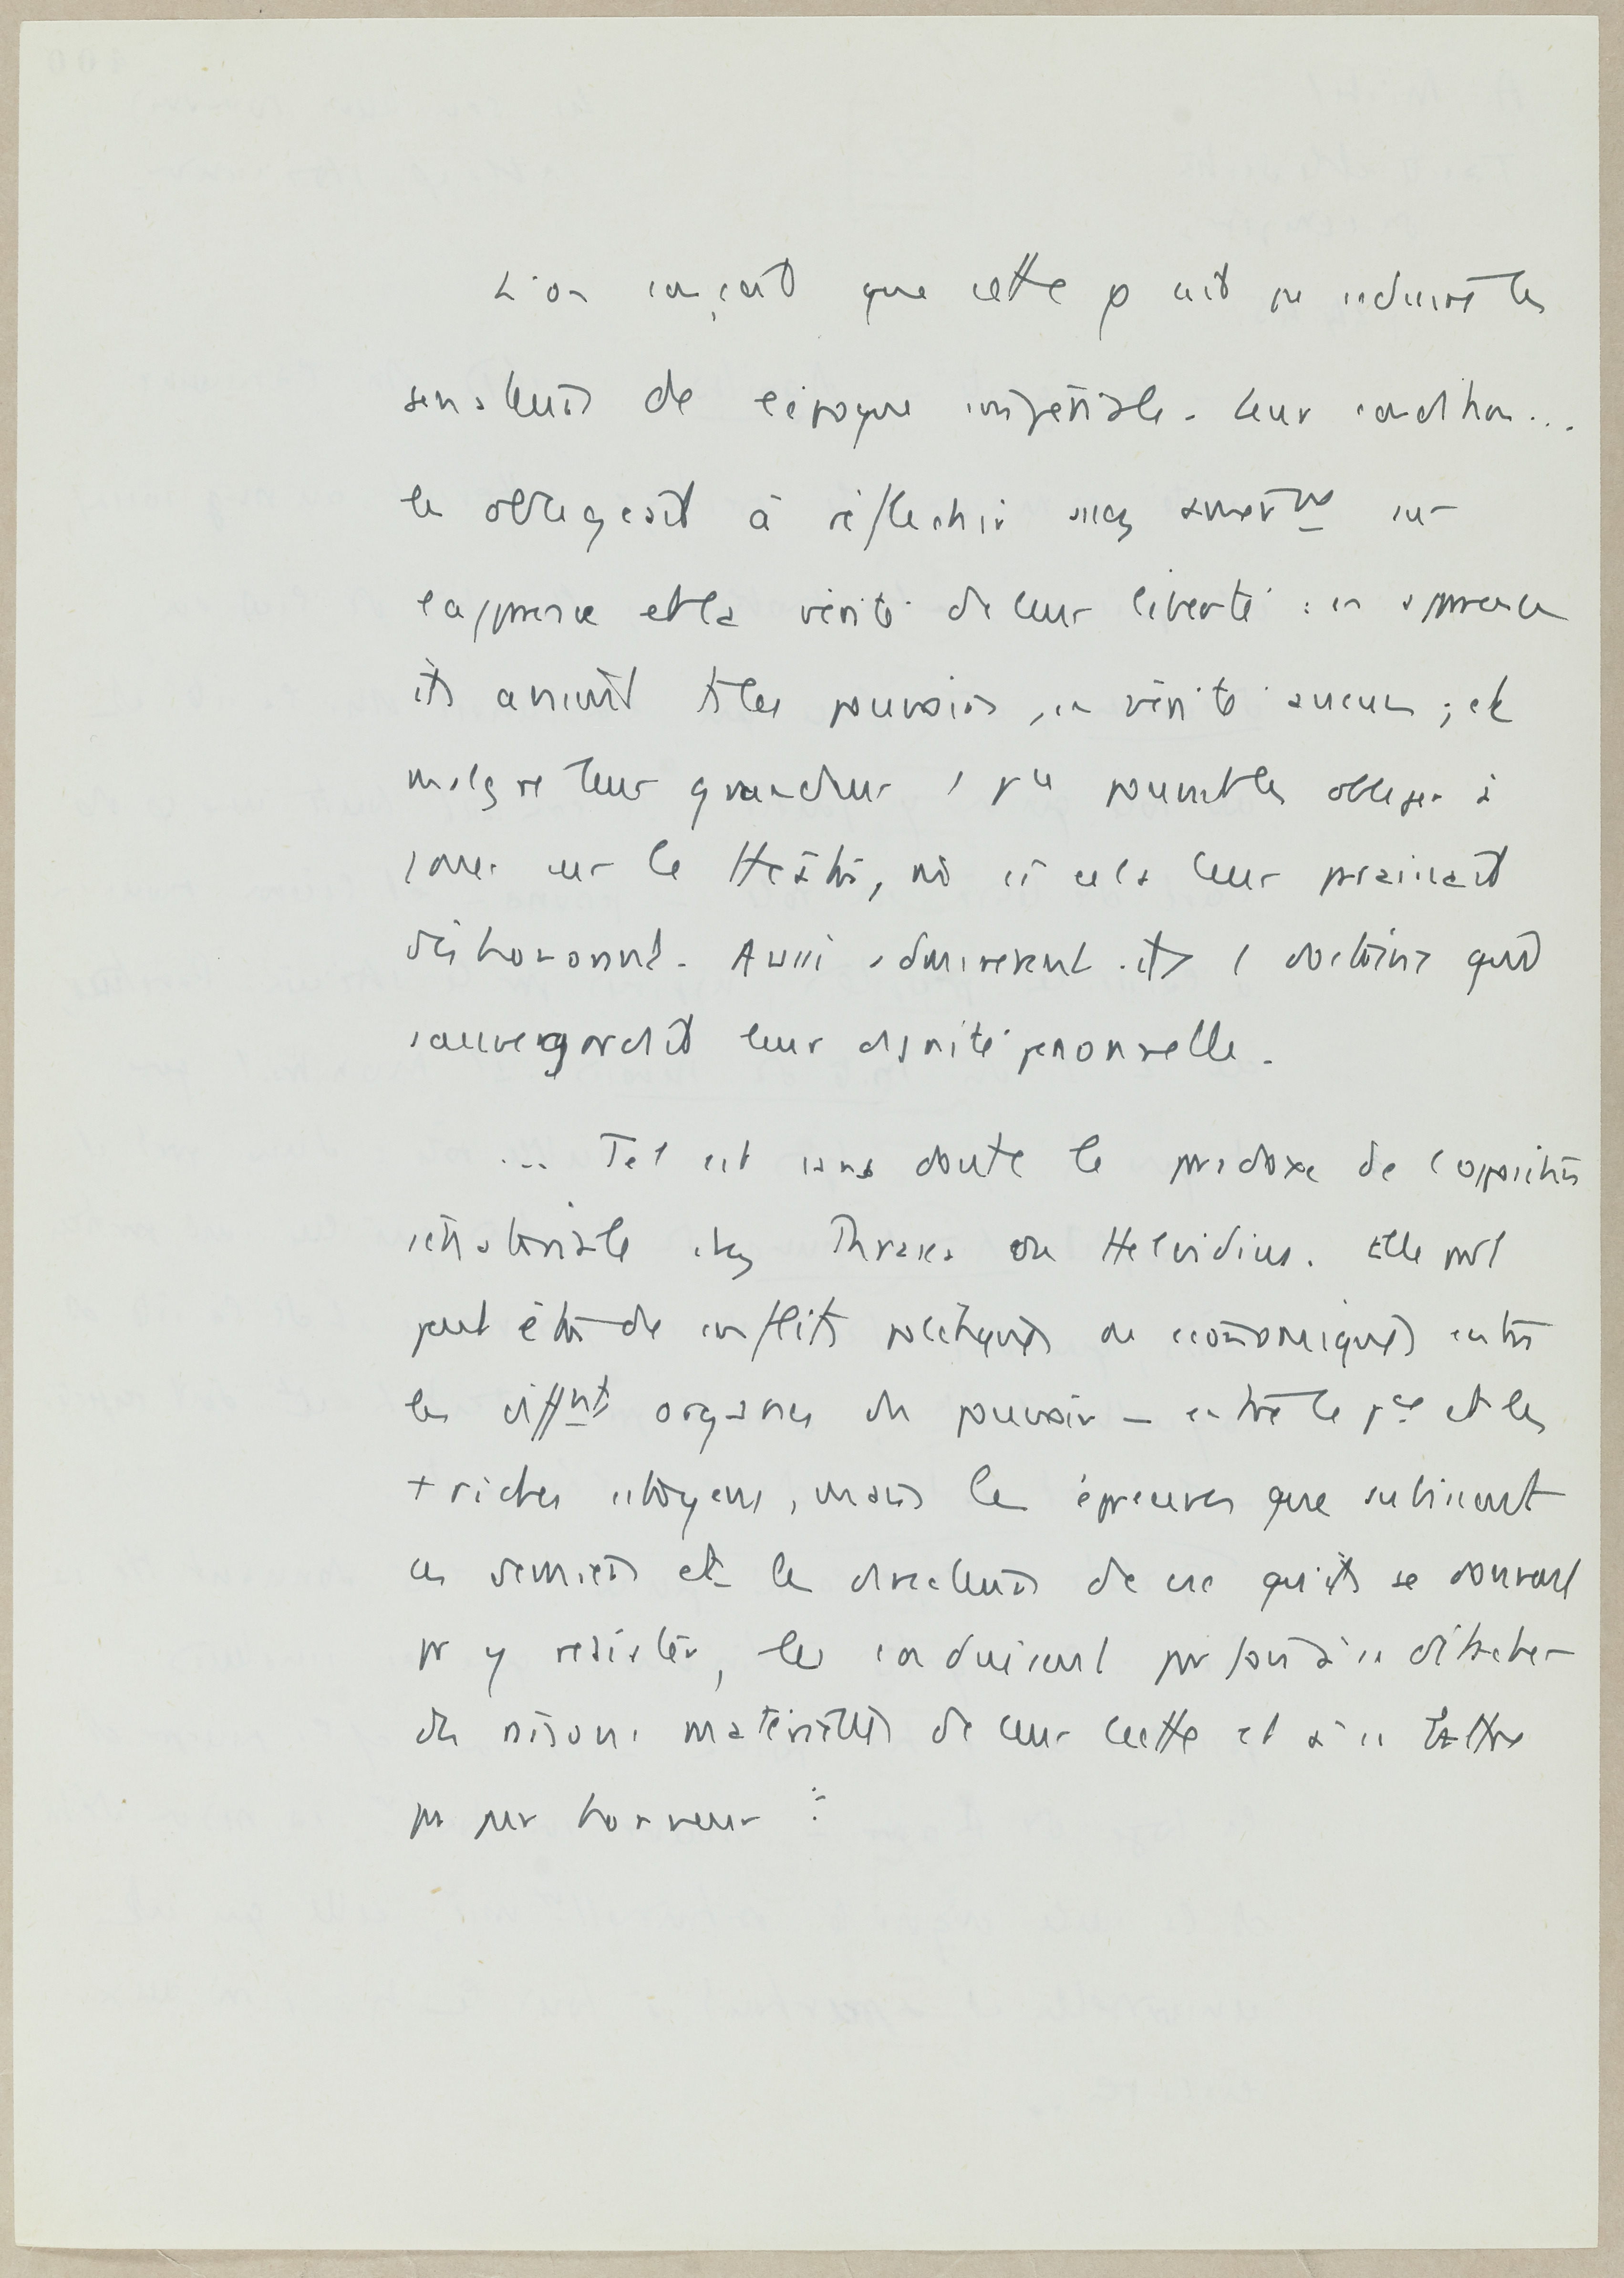 L'on conçoit que cette φ ait pu séduire les
sénateurs de l'époque impériale. Leur condition...
les obligeait à réflechir assez amèrt sur
l'apparence et la vérité de leur liberté : en apparence
ils avaient ts les pouvoirs, en vérité aucun ; et
malgré leur grandeur, pouvait les obliger à
jouer sur le théâtre, où si cela leur plaisait
déshonorant. Aussi admirerent-ils l doctrine qui
sauvegardait leur dignité personnelle.
... Tel est sans doute le paradoxe de l'opposition
sénatoriale chez Thrasea ou Helvidius. Elle naît
peut être de conflits politiques ou économiques entre
les diffnts organes du pouvoir – entre le pce et les
+ riches citoyens, mais les épreuves que subissent
ces derniers et les directeurs de csc qu'ils se donnent
pr y résister, les conduisent parfois à se détacher
des raisons matérielles de leur lutte et à se battre
pr pur honneur :